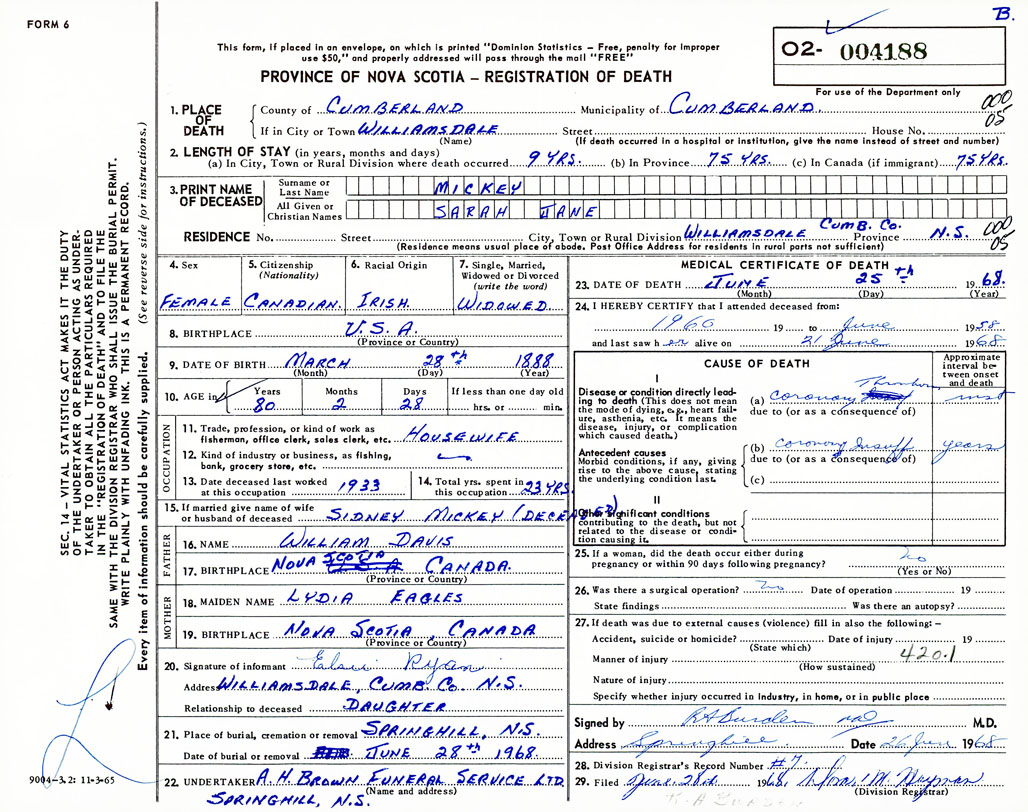 B.
FORM 6
This form, if placed in an envelope, on which is printed "Dominion Statistics – Free, penalty for improper
use $50," and properly addressed will pass through the mail "FREE"
O2- 004188
PROVINCE OF NOVA SCOTIA – REGISTRATION OF DEATH
For use of the Department only
1. PLACE OF DEATH County of CUMBERLAND Municipality of CUMBERLAND. 000 05
If in City or Town WILLIAMSDALE Street House No.
(Name) (If death occurred in a hospital or institution, give the name instead of street and number)
2. LENGTH OF STAY (in years, months and days)
(a) In City, Town or Rural Division where death occurred 9 YRS. (b) In Province 75 YRS. (c) In Canada (if immigrant) 75 YRS.
3. PRINT NAME OF DECEASED
Surname or Last Name MICKEY
All Given or Christian Names SARAH JANE
RESIDENCE No. Street City, Town or Rural Division WILLIAMSDALE CUMB. CO. Province N.S. 000 05
(Residence means usual place of abode. Post Office Address for residents in rural parts not sufficient)
4. Sex FEMALE
5. Citizenship (Nationality) CANADIAN.
6. Racial Origin IRISH.
7. Single, Married, Widowed or Divorced (write the word) WIDOWED.
8. BIRTHPLACE U.S.A.
(Province or Country)
9. DATE OF BIRTH MARCH 28th 1888
(Month) (Day) (Year)
10. AGE in Years Months Days If less than one day old
80 2 28 hrs. or min.
OCCUPATION
11. Trade, profession, or kind of work as
fisherman, office clerk, sales clerk, etc. HOUSEWIFE
12. Kind of industry or business, as fishing,
bank, grocery store, etc.
13. Date deceased last worked
at this occupation 1933
14. Total yrs. spent in
this occupation 23 YRS.
15. If married give name of wife
or husband of deceased SIDNEY MICKEY (DECEASED)
FATHER
16. NAME WILLIAM DAVIS
17. BIRTHPLACE NOVA SCOTIA CANADA.
(Province or Country)
MOTHER
18. MAIDEN NAME LYDIA EAGLES
19. BIRTHPLACE NOVA SCOTIA, CANADA
(Province or Country)
20. Signature of informant Elsie Ryan
Address WILLIAMSDALE, CUMB. CO. N.S.
Relationship to deceased DAUGHTER
21. Place of burial, cremation or removal SPRINGHILL, N.S.
Date of burial or removal JUNE 28th 1968.
22. UNDERTAKER A. H. BROWN FUNERAL SERVICE LTD.
(Name and address)
SPRINGHILL, N.S.
MEDICAL CERTIFICATE OF DEATH
23. DATE OF DEATH JUNE 25th 1968.
(Month) (Day) (Year)
24. I HEREBY CERTIFY that I attended deceased from:
1960 19 to June 1958
and last saw her alive on 21 June 1968
CAUSE OF DEATH
Approximate interval between onset and death
I
Disease or condition directly leading to death (This does not mean the mode of dying, e.g., heart failure, asthenia, etc. It means the disease, injury, or complication which caused death.)
(a) coronary
due to (or as a consequence of)
Antecedent causes
Morbid conditions, if any, giving rise to the above cause, stating the underlying condition last.
(b) coronary Insuff years
due to (or as a consequence of)
(c)
II
Other significant conditions
contributing to the death, but not related to the disease or condition causing it.
25. If a woman, did the death occur either during
pregnancy or within 90 days following pregnancy? no
(Yes or No)
26. Was there a surgical operation? no Date of operation 19
State findings Was there an autopsy?
27. If death was due to external causes (violence) fill in also the following: –
Accident, suicide or homicide? Date of injury 19
(State which)
Manner of injury 420.1
(How sustained)
Nature of injury
Specify whether injury occurred in industry, in home, or in public place
Signed by M.D.
Address Springhill Date 26 Jun 1968
28. Division Registrar's Record Number #7.
29. Filed June 28th 1968
(Division Registrar)
SEC. 14 – VITAL STATISTICS ACT MAKES IT THE DUTY
OF THE UNDERTAKER OR PERSON ACTING AS UNDER-
TAKER TO OBTAIN ALL THE PARTICULARS REQUIRED
IN THE "REGISTRATION OF DEATH" AND TO FILE THE
SAME WITH THE DIVISION REGISTRAR WHO SHALL ISSUE THE BURIAL PERMIT.
WRITE PLAINLY WITH UNFADING INK. THIS IS A PERMANENT RECORD.
Every item of information should be carefully supplied. (See reverse side for instructions.)
9004-3.2: 11-3-65